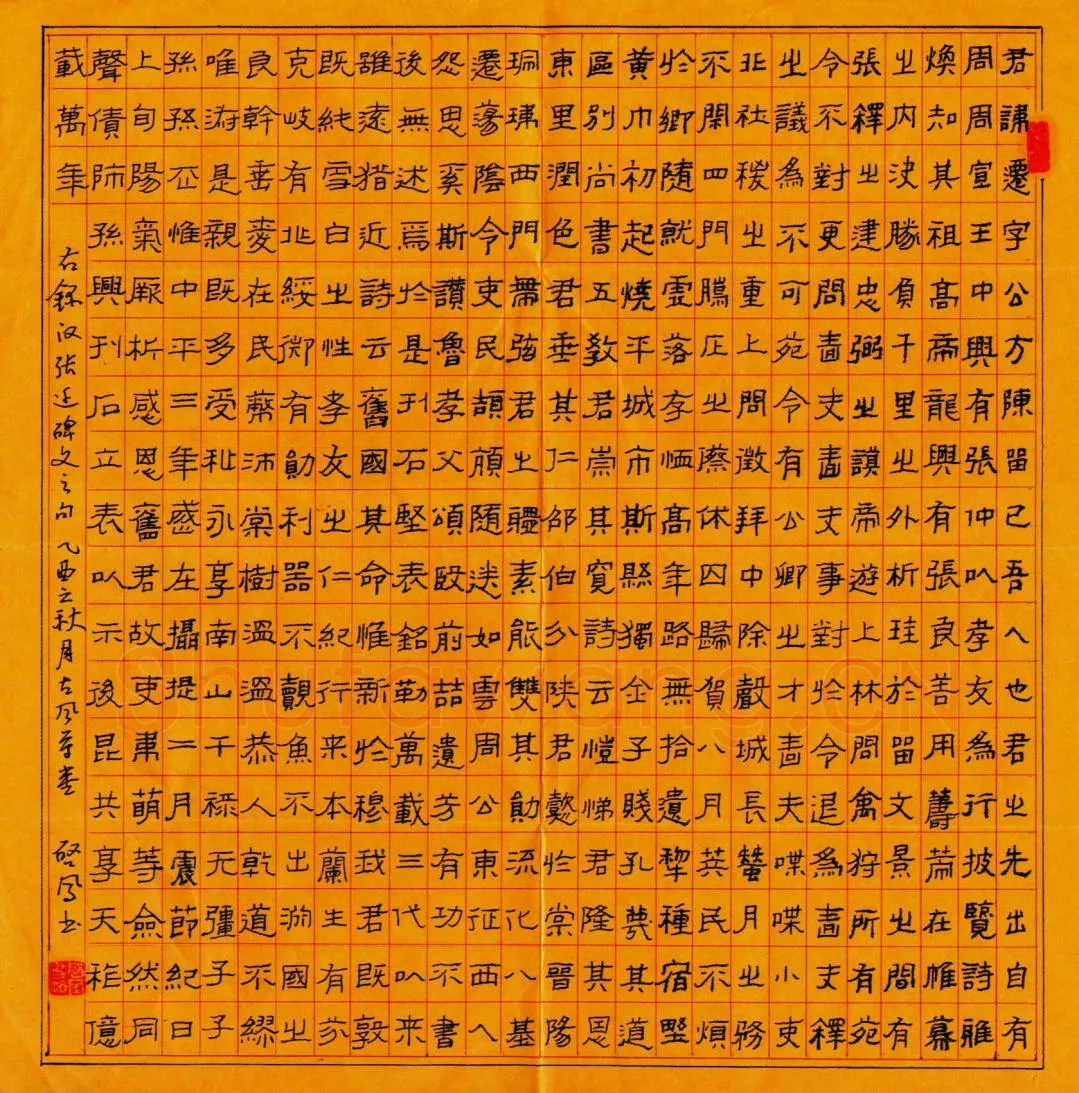 君諱遷字公方陳留己吾人也君之先出自有
周周宣王中興有張仲以孝友為行披覽詩雅
煥知其祖高帝龍興有張良善用籌策在帷幕
之内決勝負千里之外析珪於留文景之間有
張釋之建忠弼之謨帝遊上林問禽狩所有苑
令不對更問嗇夫嗇夫事對於令退為嗇夫釋
之議為不可苑令有公卿之才嗇夫喋喋小吏
北社稷之重上問徵拜中除穀城長蠶月之務
不閑四門騰正之蔡休囚歸賀八月英民不煩
於鄉隨就虛落存恤高年路無拾遺犁種宿野
黄巾初起燒平城市斯縣獨全子賤孔蔑其道
區別尚書五教君崇其寬詩云愷悌君隆其恩
東里潤色君垂其仁邵伯分陝君懿於棠晉陽
珮瑋西門帶弦君之體素能雙其勛流化八基
遷蕩陰令吏民頡頏隨送如雲周公東征西人
怨思奚斯讚魯孝父頌殷前喆遺芳有功不書
後無述焉於是刊石堅表銘勒萬載三代以来
雖遠猶近詩云舊國其命惟新於穆我君既敦
既純雪白之性孝友之仁紀行来本蘭生有芬
克岐有兆綏御有勛利器不覿魚不出渊國之
良幹垂愛在民蔽沛棠樹温温恭人乾道不繆
唯淑是親既多受祉永享南山干禄无疆子子
孫孫丕惟中平三年歲在攝提二月震節紀日
上旬陽氣厥析感恩舊君故吏韋萌等僉然同
聲債師孫興刊石立表以示後昆共享天祚億
載萬年
右録汉张迁碑文之句 乙酉之秋月古风草堂 啓凤书
Shufawang.CN